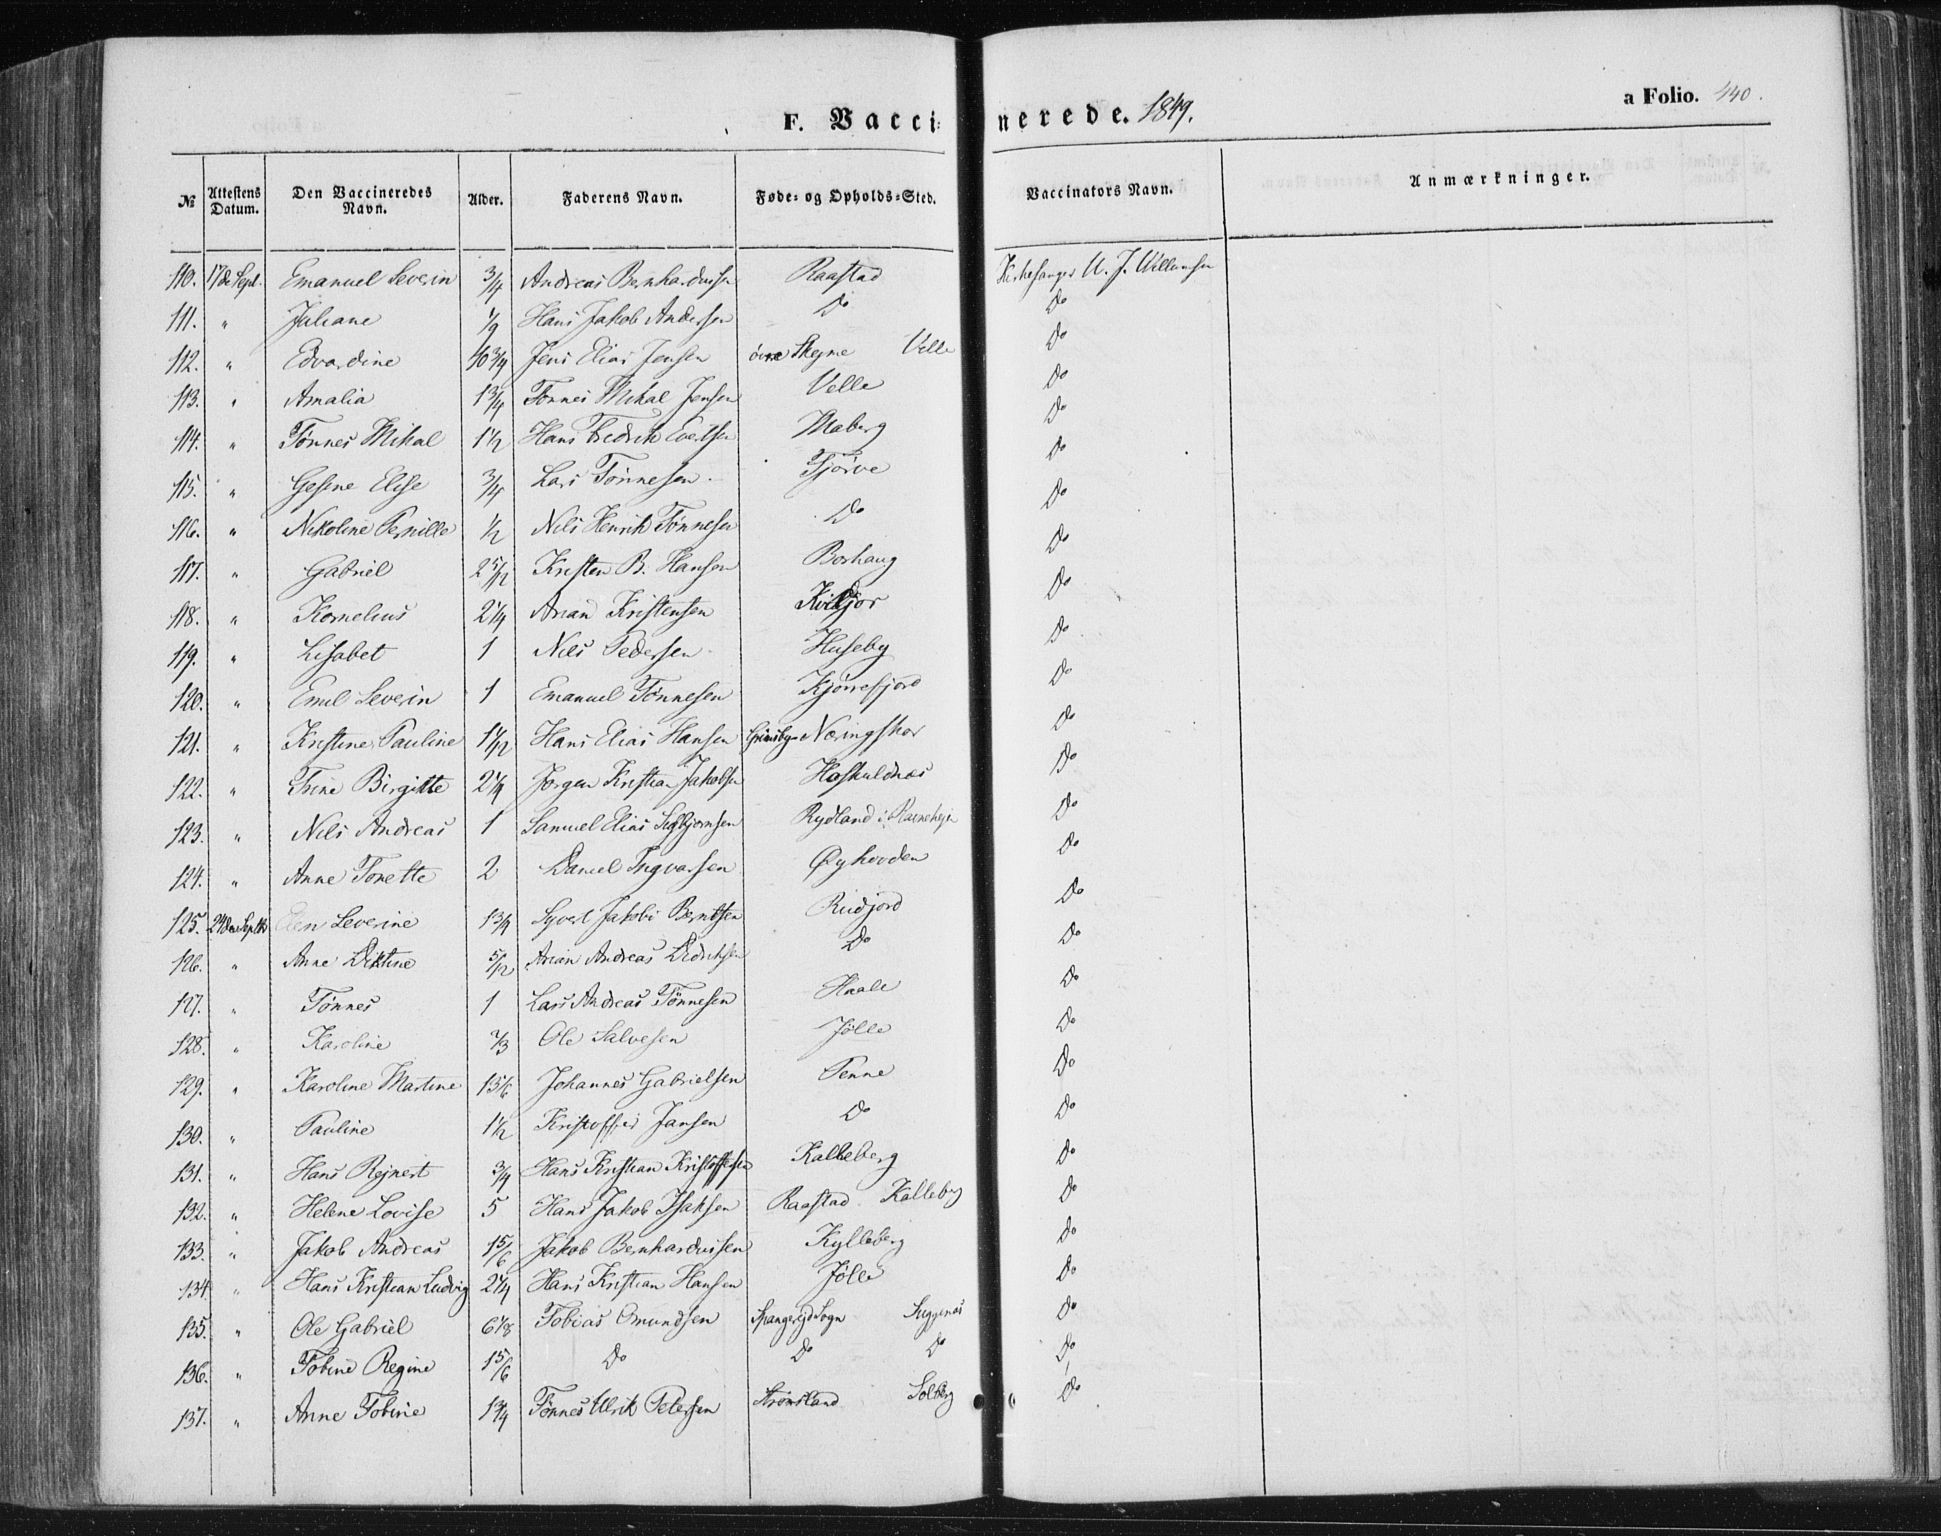 F. Vaccinerede. 1849.
a Folio. 440.
№ Attestens Datum. Den Vaccineredes Navn. Alder. Faderens Navn. Føde- og Opholds-Sted. Vaccinators Navn. Anmærkninger.
110. 17de Sept. Emanuel Severin 3/4 Andreas Bernhardussen Raastad Kirkesanger U. J. Willumsen
111. " Juliane 1/9 Hans Jakob Andersen Do Do
112. " Edvardine 10 3/4 Jens Elias Jensen øvre Skeyne Velle Do
113. " Amalia 1 3/4 Tønnes Mikal Jensen Velle Do
114. " Tønnes Mikal 1 1/2 Hans Fredrik Evertsen Maberg Do
115. " Gesine Elise 3/4 Lars Tønnesen Tjørve Do
116. " Nikoline Pernille 1/2 Nils Henrik Tønnesen Do Do
117. " Gabriel 2 5/12 Kristen B. Hansen Borhaug Do
118. " Kornelius 2 1/4 Arian Kristensen Do
119. " Lisabet 1 Nils Pedersen Huseby Do
120. " Emil Severin 1 Emanuel Tønnesen Kjørrefjord Do
121. " Kristine Pauline 1 1/12 Hans Elias Hansen Grimsbye Næringskor Do
122. " Trine Birgitte 2 1/4 Jørgen Kristian Jakobsen Haskuldnes Do
123. " Nils Andreas 1 Samuel Elias Sigbjørnsen Rydland i Do
124. " Anne Tonette 2 Daniel Ingvarsen Øyhovden Do
125. 24de Septbr Elen Severine 1 3/4 Syvert Jakob Berntsen Rudjord Do
126. " Anne Diktine 5/12 Arian Andreas Didriksen Do Do
127. " Tønnes 1 Lars Andreas Tønnesen Haale Do
128. " Karoline 2/3 Ole Salvesen Jølle Do
129. " Karoline Martine 1 5/6 Johannes Gabrielsen Penne Do
130. " Pauline 1 1/2 Kristoffer Jansen Do Do
131. " Hans Rejnert 3/4 Hans Kristian Kristoffersen Kalleberg Do
132. " Helene Lovise 5 Hans Jakob Isaksen Raastad Kalleberg Do
133. " Jakob Andreas 1 5/6 Jakob Bernhardussen Kylleberg Do
134. " Hans Kristian Ludvig 2 1/4 Hans Kristian Hansen Jølle Do
135. " Ole Gabriel 6 1/8 Tobias Omundsen Spangereid Sogn Siggenes Do
136. " Tobine Regine 1 5/6 Do Do Do Do
137. " Anne Tobine 1 3/4 Tønnes Ulrik Petersen Strømsland Solberg Do